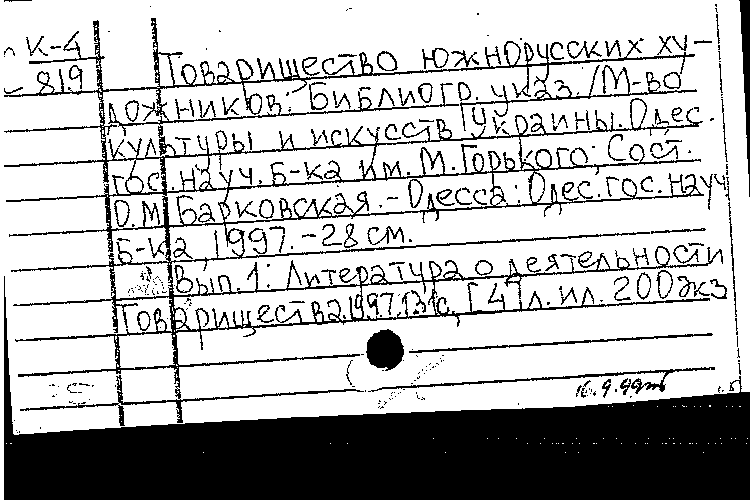 К-4
819
Товарищество южнорусских ху-
дожников: Библиогр. указ. /М-во
культуры и искусств Украины. Одес.
гос. науч. б-ка им. М. Горького; Сост.
О.М. Барковская. - Одесса: Одес. гос. науч
б-ка, 1997. - 28 см.
Вып. 1: Литература о деятельности
Товарищества. 1997. 131с., [4] л. ил. 200 экз
16.9.99